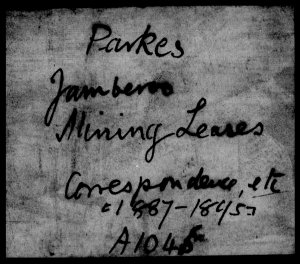 Parkes
Jamberoo
Mining Leases
Correspondence, etc
[1887-1895]
A1045